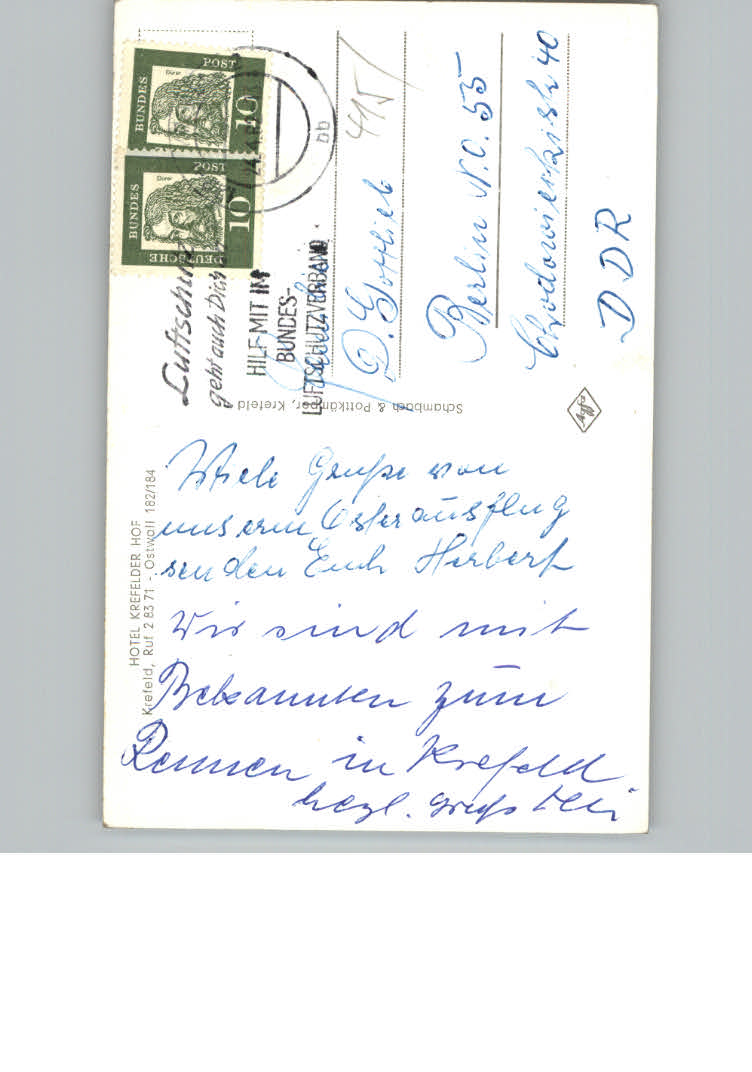 HOTEL KREFELDER HOF
Krefeld, Ruf 2 83 71 - Ostwall 182/184
Viele Grüße von
unserm Osterausflug
senden Euch Herbert
Wir sind mit
Bekannten zum
Rennen in Krefeld
herzl. Gruß
Schambach & Pottkämper, Krefeld
Agfa
DEUTSCHE
BUNDES
POST
Dürer
10
BUNDES
POST
Dürer
10
Luftschutz
geht auch Dich an
HILF MIT IM
BUNDES-
LUFTSCHUTZVERBAND
bb
415
D. Gottlieb
Berlin N.O. 55
Chodowieckistr 40
DDR